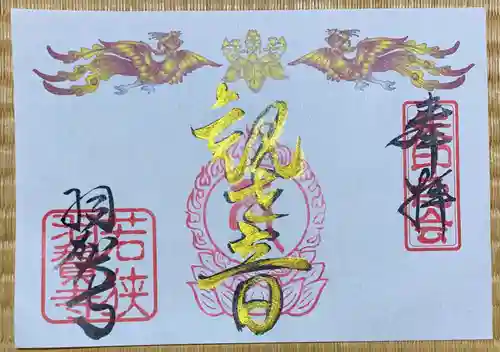 奉拝
観音
羽賀寺
若狭
羽賀寺